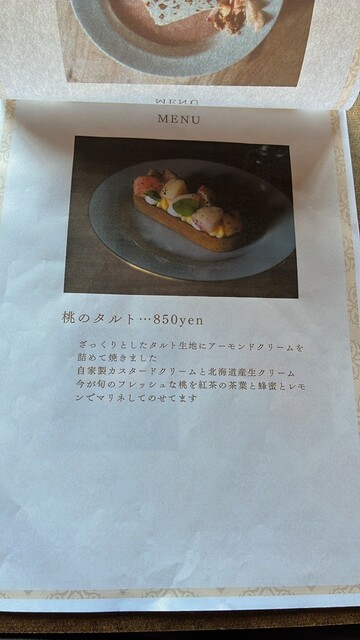 MENU
MENU
桃のタルト…850yen
ざっくりとしたタルト生地にアーモンドクリームを
詰めて焼きました
自家製カスタードクリームと北海道産生クリーム
今が旬のフレッシュな桃を紅茶の茶葉と蜂蜜とレモ
ンでマリネしてのせてます